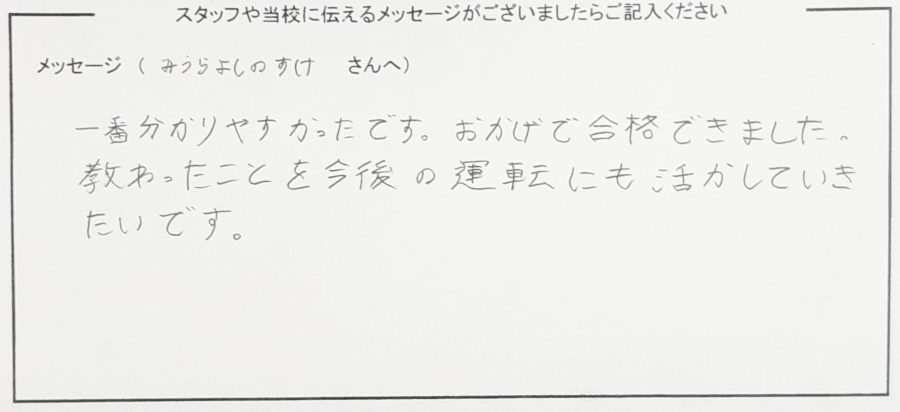 スタッフや当校に伝えるメッセージがございましたらご記入ください
メッセージ（ みうらよしのすけ さんへ）
一番分かりやすかったです。おかげで合格できました。
教わったことを今後の運転にも活かしていき
たいです。